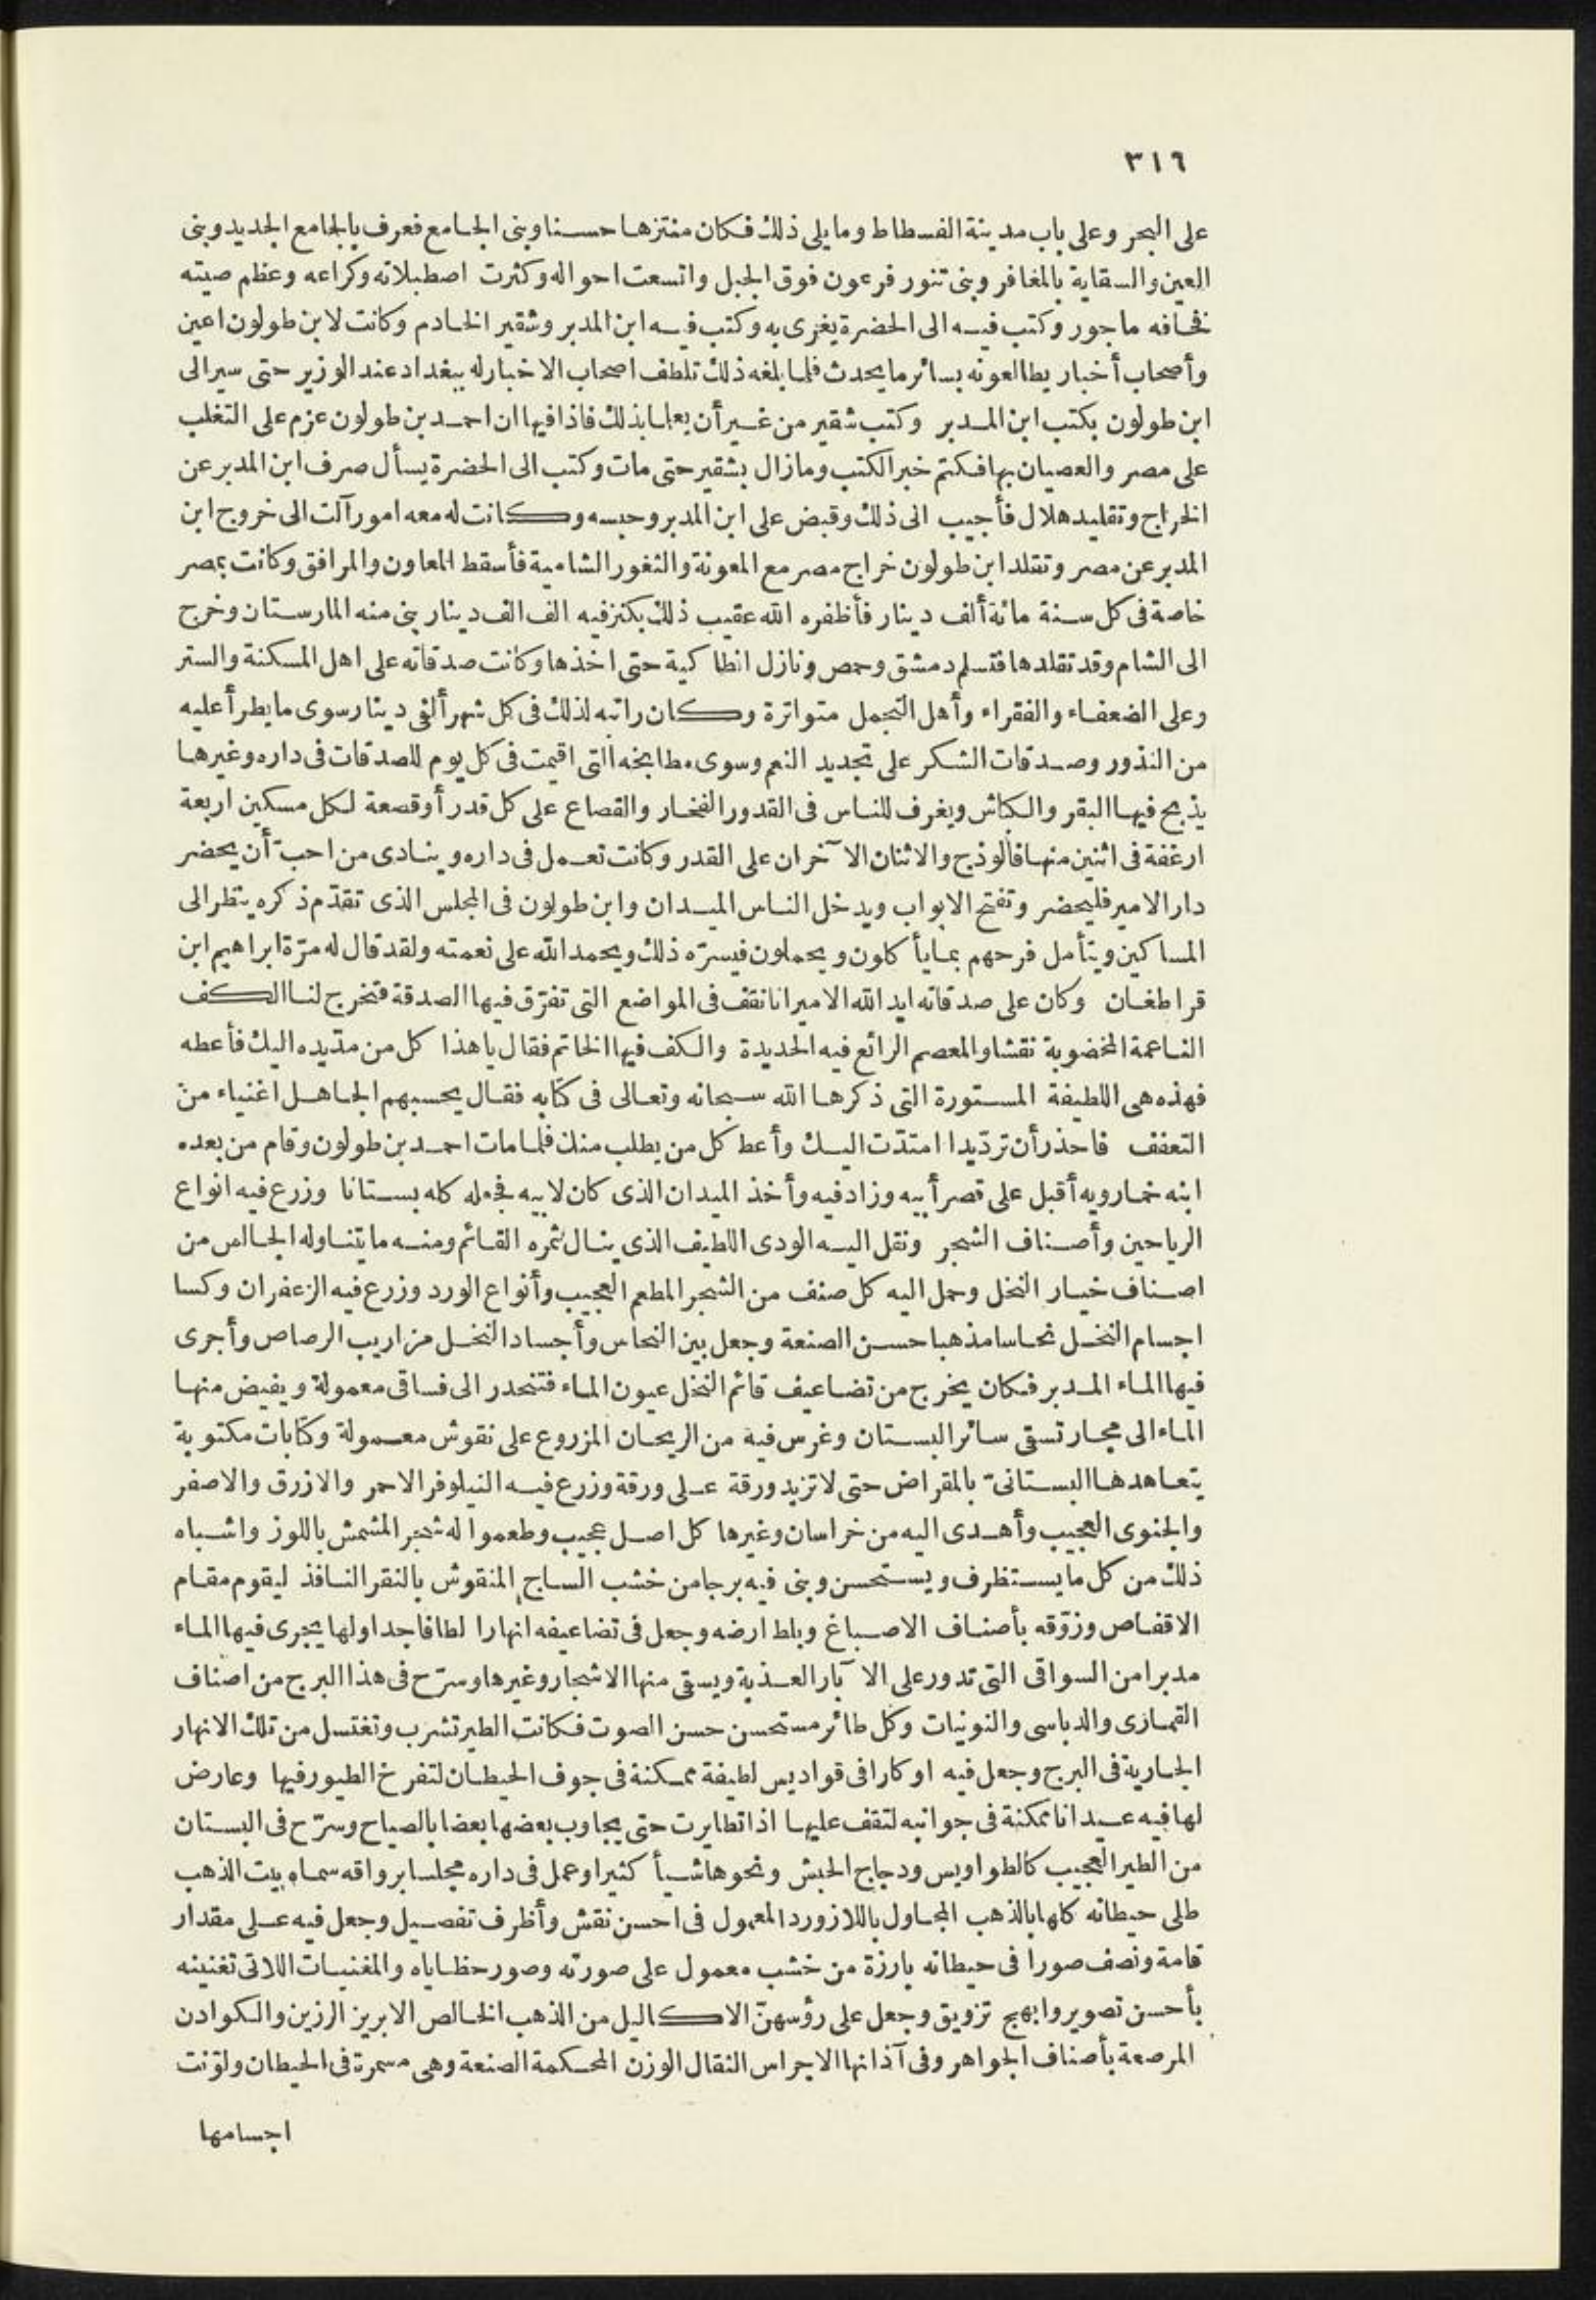 ٣١٦
على البحر وعلى باب مدينة الفسطاط وما يلى ذلك فكان منتزها حسنا وبنى الجامع فعرف بالجامع الجديد وبنى
العين والسقاية بالمغافر وبنى تنور فرعون فوق الجبل واتسعت احواله وكثرت اصطبلاته وكراعه وعظم صيته
فخافه ماجور وكتب فيه الى الحضرة يغرى به وكتب فيه ابن المدبر وشقير الخادم وكانت لابن طولون اعين
وأصحاب أخبار يطالعونه بسائر ما يحدث فلما بلغه ذلك تلطف اصحاب الاخبار له ببغداد عند الوزير حتى سير الى
ابن طولون بكتب ابن المدبر وكتب شقير من غير أن يعلما بذلك فاذا فيها ان احمد بن طولون عزم على التغلب
على مصر والعصيان بها فكتم خبر الكتب وما زال بشقير حتى مات وكتب الى الحضرة يسأل صرف ابن المدبر عن
الخراج وتقليد هلال فأجيب الى ذلك وقبض على ابن المدبر وحبسه وكانت له معه امور آلت الى خروج ابن
المدبر عن مصر وتقلد ابن طولون خراج مصر مع المعونة والثغور الشامية فأسقط المعاون والمرافق وكانت بمصر
خاصة فى كل سنة مائة ألف دينار فأظفره الله عقيب ذلك بكنز فيه الف الف دينار بنى منه المارستان وخرج
الى الشام وقد تقلدها فتسلم دمشق وحمص ونازل انطاكية حتى اخذها وكانت صدقاته على اهل المسكنة والستر
وعلى الضعفاء والفقراء وأهل التجمل متواترة وكان راتبه لذلك فى كل شهر ألفى دينار سوى ما يطرأ عليه
من النذور وصدقات الشكر على تجديد النعم وسوى مطابخه التى اقيمت فى كل يوم للصدقات فى داره وغيرها
يذبح فيها البقر والكباش ويغرف للناس فى القدور الفخار والقصاع على كل قدر أو قصعة لكل مسكين اربعة
ارغفة فى اثنين منها فالوذج والاثنان الآخران على القدر وكانت تعمل فى داره وينادى من احبّ أن يحضر
دار الامير فليحضر وتفتح الابواب ويدخل الناس الميدان وابن طولون فى المجلس الذى تقدّم ذكره ينظر الى
المساكين ويتأمل فرحهم بما يأكلون ويحملون فيسرّه ذلك ويحمد الله على نعمته ولقد قال له مرّة ابراهيم ابن
قراطغان وكان على صدقاته ايد الله الامير انا نقف فى المواضع التى تفرّق فيها الصدقة فتخرج لنا الكف
الناعمة المخضوبة نقشا والمعصم الرائع فيه الحديدة والكف فيها الخاتم فقال يا هذا كل من مدّ يده اليك فأعطه
فهذه هى اللطيفة المستورة التى ذكرها الله سبحانه وتعالى فى كتابه فقال يحسبهم الجاهل اغنياء من
التعفف فاحذر أن تردّ يدا امتدّت اليك وأعط كل من يطلب منك فلما مات احمد بن طولون وقام من بعده
ابنه خمارويه أقبل على قصر أبيه وزاد فيه وأخذ الميدان الذى كان لابيه فجعله كله بستانا وزرع فيه انواع
الرياحين وأصناف الشجر ونقل اليه الودى اللطيف الذى ينال ثمره القائم ومنه ما يتناوله الجالس من
اصناف خيار النخل وحمل اليه كل صنف من الشجر المطعم العجيب وأنواع الورد وزرع فيه الزعفران وكسا
اجسام النخل نحاسا مذهبا حسن الصنعة وجعل بين النحاس وأجساد النخل مزاريب الرصاص وأجرى
فيها الماء المدبر فكان يخرج من تضاعيف قائم النخل عيون الماء فتنحدر الى فساقى معمولة ويفيض منها
الماء الى مجار تسقى سائر البستان وغرس فيه من الريحان المزروع على نقوش معمولة وكتابات مكتوبة
يتعاهدها البستانىّ بالمقراض حتى لا تزيد ورقة على ورقة وزرع فيه النيلوفر الاحمر والازرق والاصفر
والجنوى العجيب وأهدى اليه من خراسان وغيرها كل اصل عجيب وطعموا له شجر المشمش باللوز واشباه
ذلك من كل ما يستظرف ويستحسن وبنى فيه برجا من خشب الساج المنقوش بالنقر النافذ ليقوم مقام
الاقفاص وزوّقه بأصناف الاصباغ وبلط ارضه وجعل فى تضاعيفه انهارا لطافا جداولها يجرى فيها الماء
مدبرا من السواقى التى تدور على الآبار العذبة ويسقى منها الاشجار وغيرها وسرّح فى هذا البرج من اصناف
القمارى والدباسى والنونيات وكل طائر مستحسن حسن الصوت فكانت الطير تشرب وتغتسل من تلك الانهار
الجارية فى البرج وجعل فيه اوكارا فى قواديس لطيفة ممكنة فى جوف الحيطان لتفرخ الطيور فيها وعارض
لها فيه عيدانا ممكنة فى جوانبه لتقف عليها اذا تطايرت حتى يجاوب بعضها بعضا بالصياح وسرّح فى البستان
من الطير العجيب كالطواويس ودجاج الحبش ونحوها شيأ كثيرا وعمل فى داره مجلسا برواقه سماه بيت الذهب
طلى حيطانه كلها بالذهب المجاول باللازورد المعمول فى احسن نقش وأظرف تفصيل وجعل فيه على مقدار
قامة ونصف صورا فى حيطانه بارزة من خشب معمول على صورته وصور حظاياه والمغنيات اللاتى تغنينه
بأحسن تصوير وابهج تزويق وجعل على رؤسهنّ الاكاليل من الذهب الخالص الابريز الرزين والكوادن
المرصعة بأصناف الجواهر وفى آذانها الاجراس الثقال الوزن المحكمة الصنعة وهى مسمرة فى الحيطان ولوّنت
اجسامها